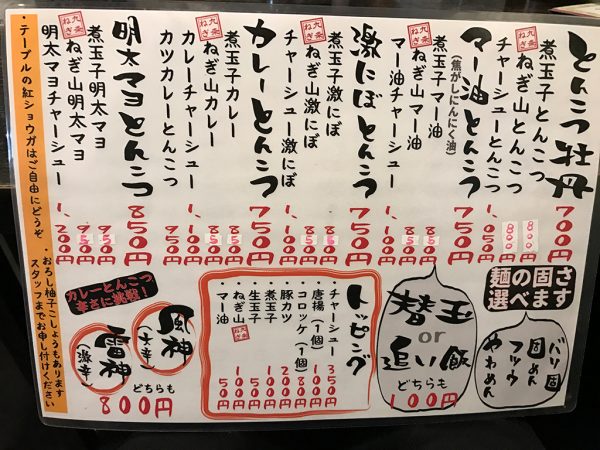 とんこつ牡丹 700円
煮玉子とんこつ 800円
九条ねぎ ねぎ山とんこつ 800円
チャーシューとんこつ 1,050円
マー油とんこつ 750円
(焦がしにんにく油)
煮玉子マー油 850円
九条ねぎ ねぎ山マー油 850円
マー油チャーシュー 1,100円
激にぼとんこつ 750円
煮玉子激にぼ 850円
九条ねぎ ねぎ山激にぼ 850円
チャーシュー激にぼ 1,100円
カレーとんこつ 750円
煮玉子カレー 850円
九条ねぎ ねぎ山カレー 850円
カレーチャーシュー 1,100円
カツカレーとんこつ 950円
明太マヨとんこつ 850円
煮玉子明太マヨ 950円
九条ねぎ ねぎ山明太マヨ 950円
明太マヨチャーシュー 1,200円
麺の固さ
選べます
バリ固
固めん
フツウ
やわめん
替玉
or
追い飯
どちらも
100円
トッピング
チャーシュー 350円
唐揚(1個) 100円
コロッケ(1個) 80円
豚カツ 200円
煮玉子 100円
生玉子 50円
ねぎ山 九条ねぎ 100円
マー油 50円
カレーとんこつ
辛さに挑戦!
風神
(大辛)
雷神
(激辛)
どちらも
800円
・テーブルの紅ショウガはご自由にどうぞ
・おろし柚子こしょうもあります
スタッフまでお申し付けください